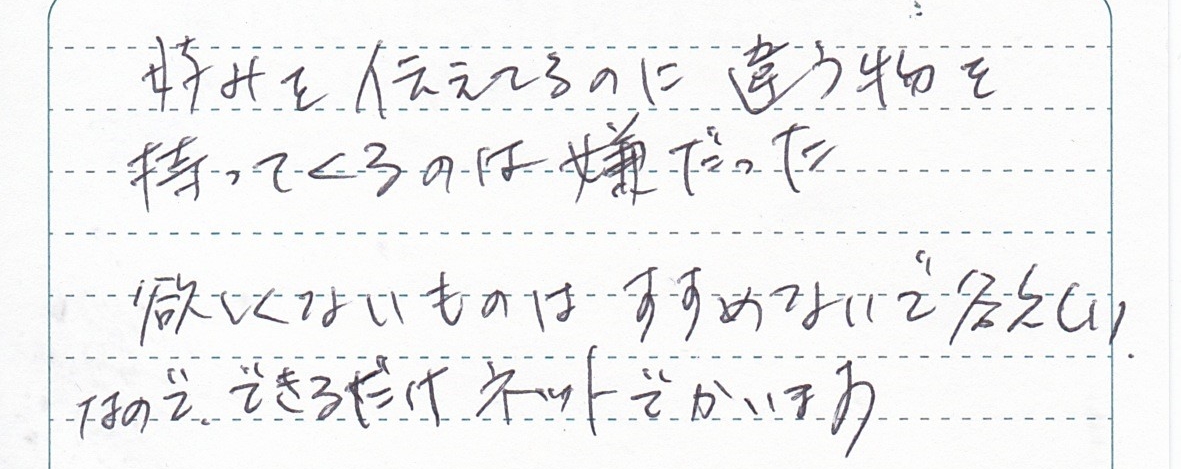 好みを伝えてるのに違う物を
持ってくるのは嫌だった
欲しくないものはすすめないで欲しい.
なので、できるだけネットでかいます